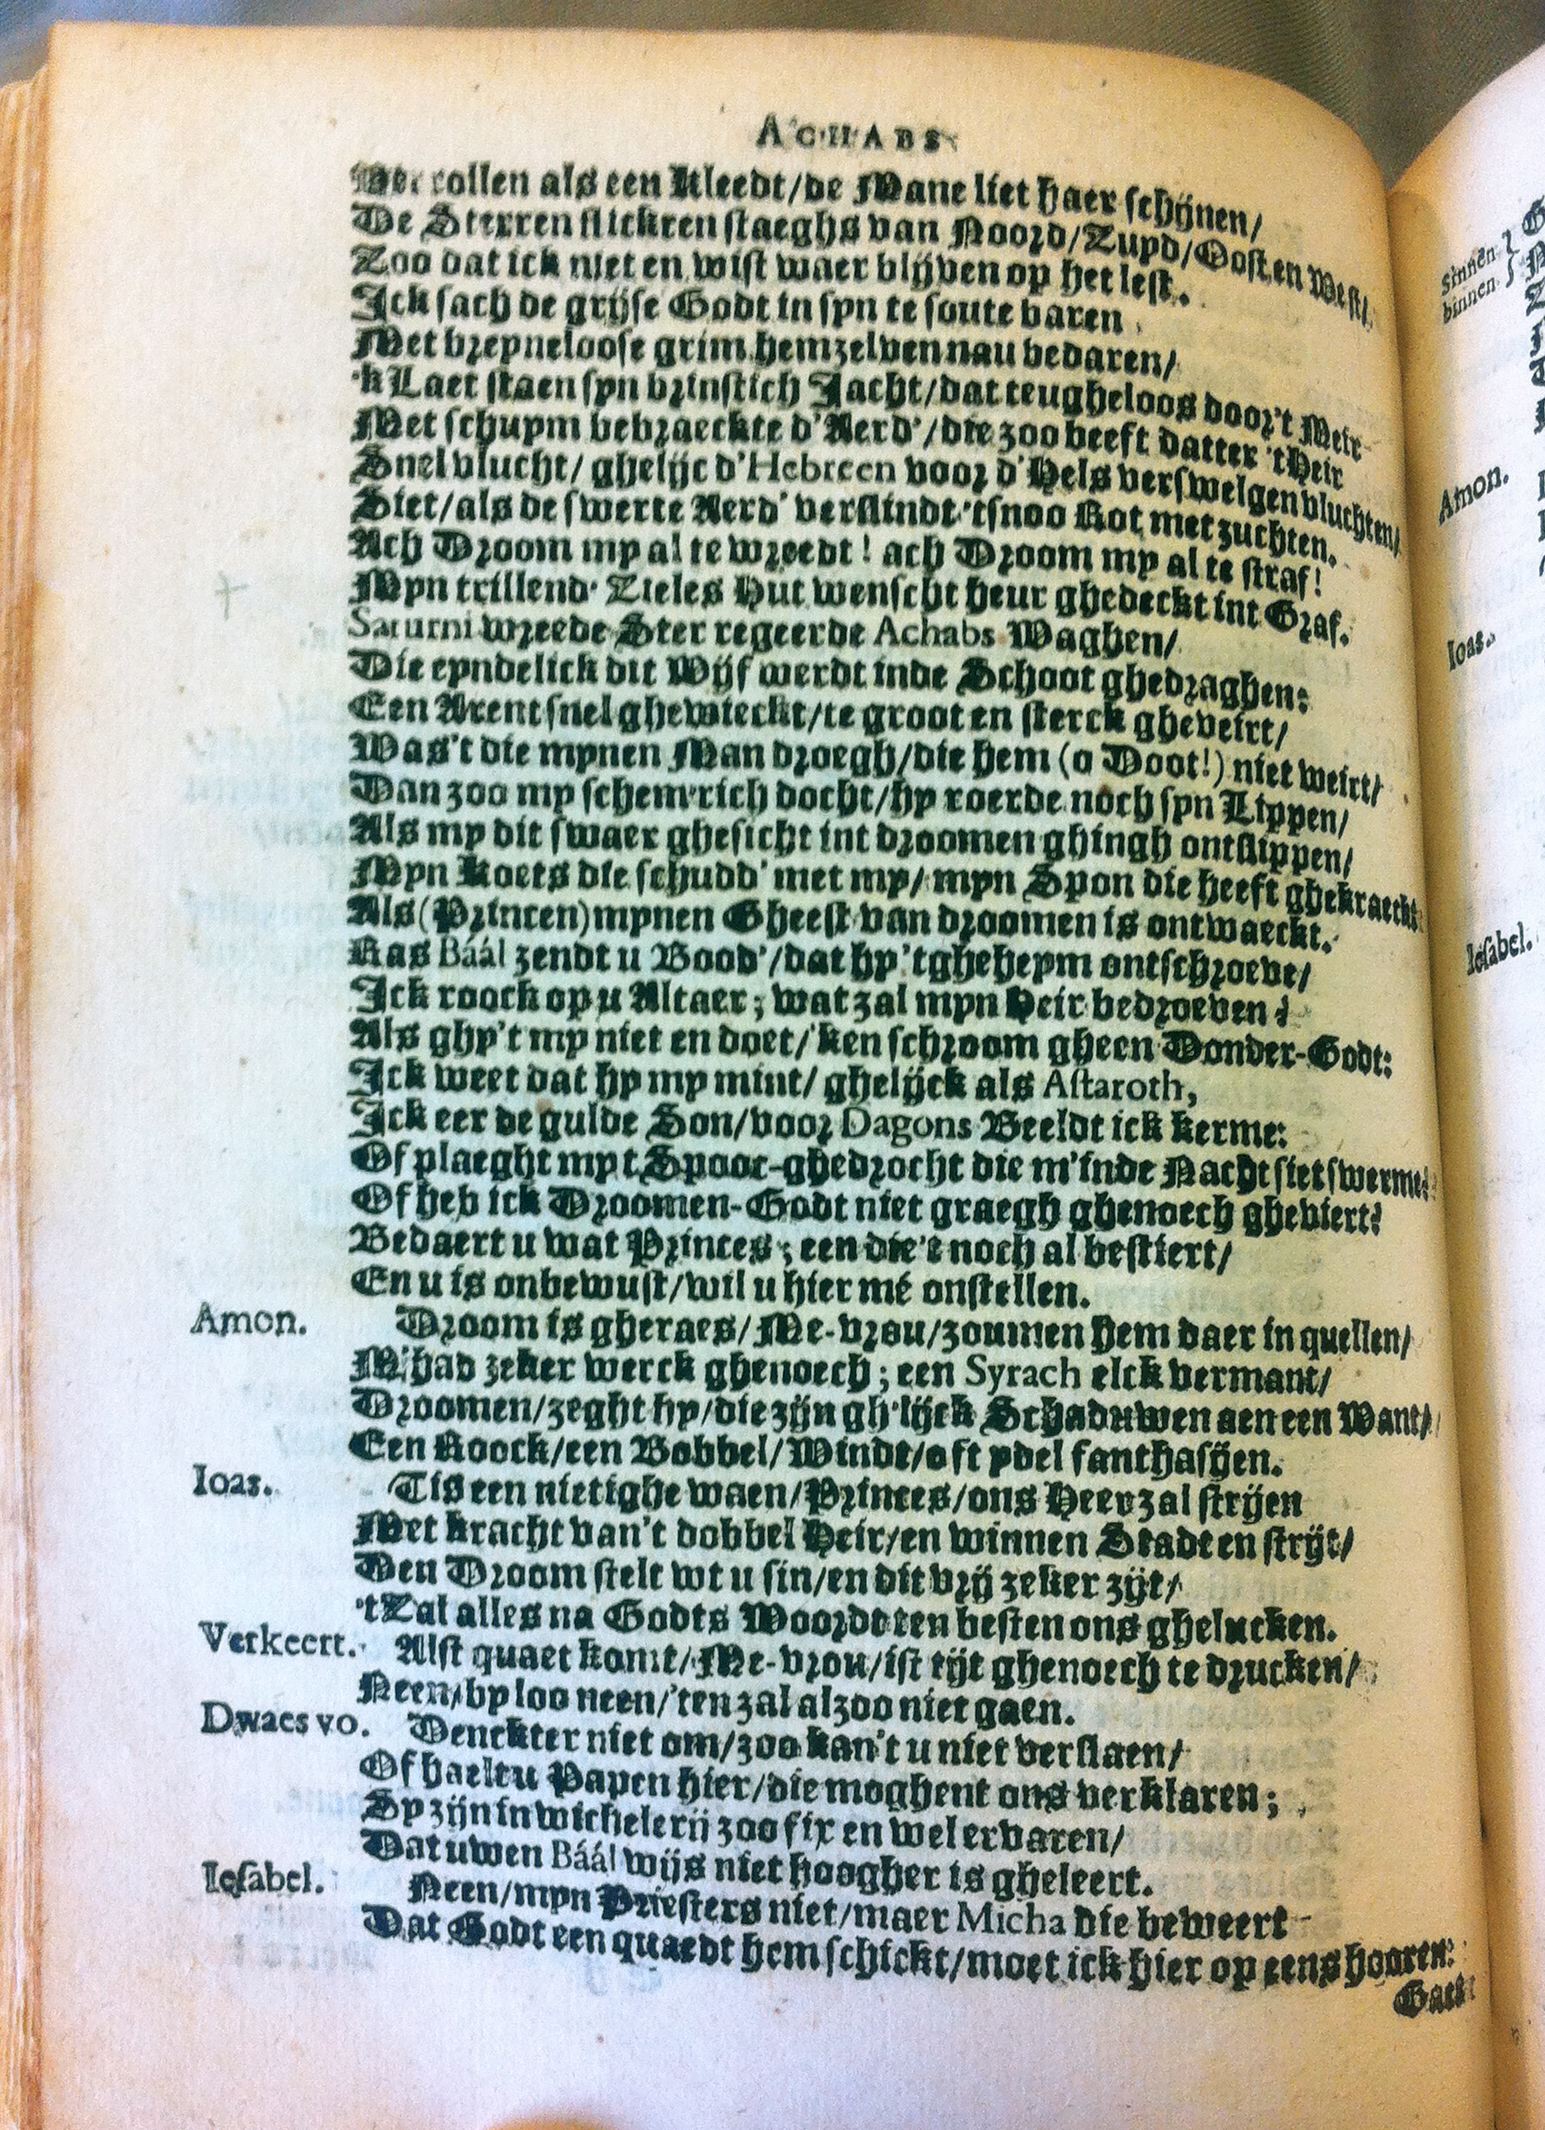 ACHABS
Verrollen als een Kleedt/de Mane liet haer schijnen/
De Sterren flickren staeghs van Noord/Zuyd/Oost en West/
Zoo dat ick niet en wist waer blijven op het lest.
Ick sach de grijse Godt in syn te soute baren
Met breyneloose grim hemzelven nau bedaren/
'k Laet staen syn brinstich Jacht/dat teugheloos door't Meir
Met schuym bebraeckte d'Aerd'/die zoo beeft datter 't Heir
Snel vlucht/ ghelijc d'Hebreen voor d'Hels verswelgen vluchten/
Siet/als de swerte Aerd' verslindt 'tsnoo Rot met zuchten.
Ach Droom my al te wreedt! ach Droom my al te straf!
Myn trillend' Zieles Hut wenscht heur ghedeckt int Graf.
Saturni wreede Ster regeerde Achabs Waghen/
Die eyndelick dit Wijf werdt inde Schoot ghedraghen:
Een Arent snel ghewieckt/te groot en sterck gheveirt/
Was't die mynen Man droegh/die hem (o Doot!) niet weirt/
Dan zoo my schem'rich docht/hy roerde noch syn Lippen/
Als my dit swaer ghesicht int droomen ghingh ontslippen/
Myn Koets die schudd' met my/ myn Spon die heeft ghekraeckt
Als (Princen) mynen Gheest van droomen is ontwaeckt.
Ras Báál zendt u Bood'/dat hy 'tgheheym ontschroeve/
Ick roock op u Altaer; wat zal myn Heir bedroeven?
Als ghy't my niet en doet/'ken schroom gheen Donder-Godt:
Ick weet dat hy my mint/ ghelijck als Astaroth,
Ick eer de gulde Son/voor Dagons Beeldt ick kerme:
Of plaeght my t Spooc-ghedrocht die m'inde Nacht siet swerme?
Of heb ick Droomen-Godt niet graegh ghenoech gheviert?
Bedaert u wat Princes; een die't noch al bestiert/
En u is onbewust/wil u hier mé onstellen.
Amon. Droom is gheraes/Me-vrou/zoumen hem daer in quellen/
M'had zeker werck ghenoech; een Syrach elck vermant/
Droomen/zeght hy/die zijn gh'lijck Schaduwen aen een Want/
Een Roock/een Bobbel/Windt/oft ydel fanthasyen.
Ioas. Tis een nietighe waen/Princes/ons Heer zal strijen
Met kracht van't dobbel Heir/en winnen Stadt en strijt/
Den Droom stelt wt u sin/en dit vrij zeker zijt/
'tZal alles na Godts Woordt ten besten ons ghelucken.
Verkeert. Alst quaet komt/Me-vrou/ist tijt ghenoech te drucken/
Neen/by loo neen/'ten zal alzoo niet gaen.
Dwaes vo. Denckter niet om/zoo kan't u niet verslaen/
Of haelt u Papen hier/die moghent ons verklaren;
Sy zijn in wichelerij zoo fix en wel ervaren/
Dat uwen Báál wijs niet hoogher is gheleert.
Iesabel. Neen/myn Priesters niet/maer Micha die beweert
Dat Godt een quaedt hem schickt/moet ick hier op eens hooren:
Sinnen
binnen
Amon.
Ioas.
Iesabel.